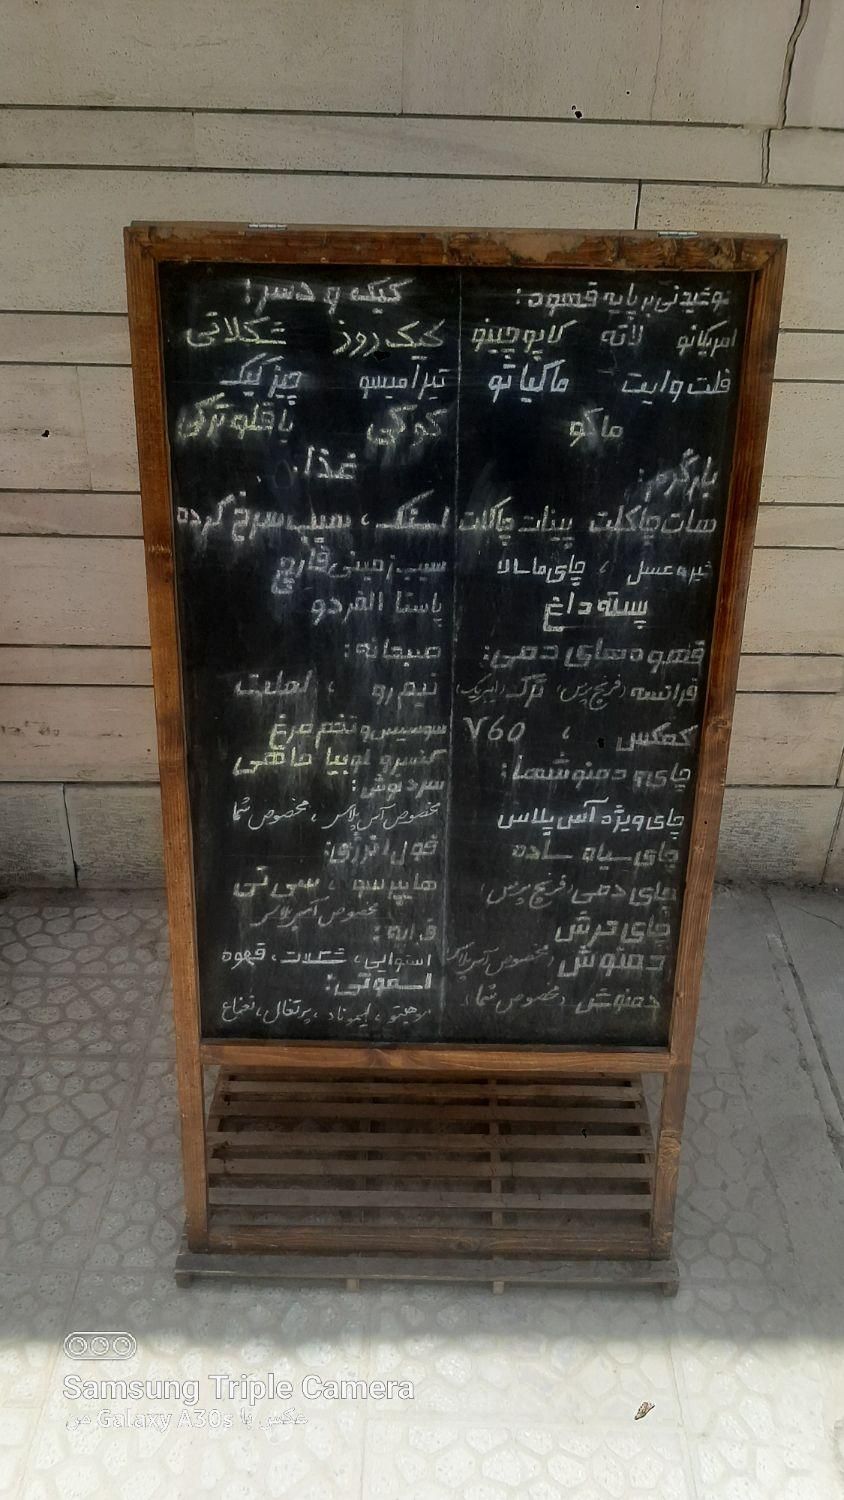 نوشیدنی بر پایه قهوه:
امریکانو لاته کاپوچینو
فلت وایت ماکیاتو
ماکو
بار گرم:
هات چاکلت پینات چاکلات
شیر عسل ، چای ماسالا
پسته داغ
قهوه های دمی:
فرانسه (فرنچ پرس) ترک (ایبریک)
کمکس ، V60
چای و دمنوشها:
چای ویژه آس پلاس
چای سیاه ساده
چای دمی (فرنچ پرس)
چای ترش
دمنوش (مخصوص آس پلاس)
دمنوش (مخصوص شما)
کیک و دسر:
کیک روز شکلاتی
تیرامیسو چیز کیک
کوکی باقلوا ترکی
غذا:
استک ، سیب سرخ کرده
سیب زمینی قارچ
پاستا الفردو
صبحانه:
نیم رو ، املت
سوسیس و تخم مرغ
کنسرو لوبیا ماهی
سردنوش:
مخصوص آس پلاس ، مخصوص شما
فول انرژی:
هایپرسو ، سی تی
مخصوص آس پلاس
فراپه:
استوایی ، شکلات ، قهوه
اسموتی:
موهیتو ، لیموناد ، پرتغال ، نعناع
Samsung Triple Camera
عکس با Galaxy A30s من